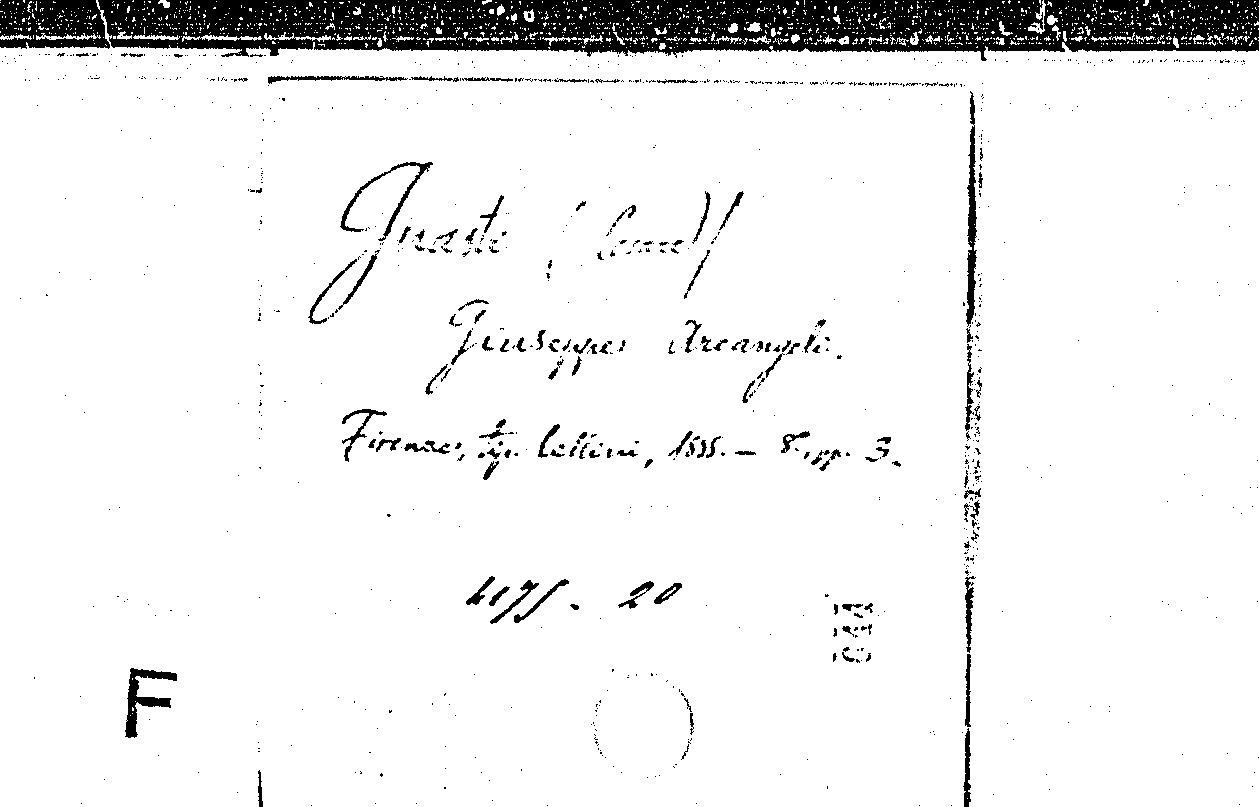 Guasti (Cesare)/
Giuseppe Arcangeli.
Firenze, tip. Cellini, 1855. — 8°, pp. 3.
4175 - 20
F